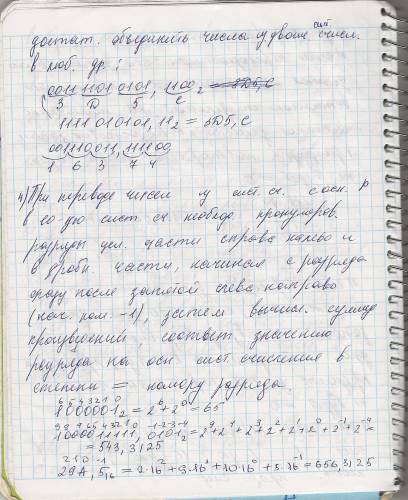 достат. объединить числа из двоич. сист. счисл.
в люб. др. :
0011 1101 0101, 1100₂ = 3D5,C
3 D 5 , C
1111010101, 11₂ = 3D5,C
001110011, 111100
1 6 3 7 4
4) При переводе чисел из сист. сч. с осн. p
в 10-ую сист. сч. необходо пронумеров.
разряды цел. части справа налево и
в дробн. части, начиная с разряда
сразу после запятой слева направо
(нач. ном. -1), затем вычисл. сумму
произведений, соответ. значению
разряда на осн. сист. счисления в
степени = номеру разряда.
6 5 4 3 2 1 0
1000001₂ = 2⁶ + 2⁰ = 65
9 8 7 6 5 4 3 2 1 0 -1 -2 -3 -4
1000011111, 0101₂ = 2⁹ + 2⁴ + 2³ + 2² + 2¹ + 2⁰ + 2⁻² + 2⁻⁴ =
= 543,3125
2 1 0 -1
29A, 5₁₆ = 2·16² + 9·16¹ + 10·16⁰ + 5·16⁻¹ = 656,3125